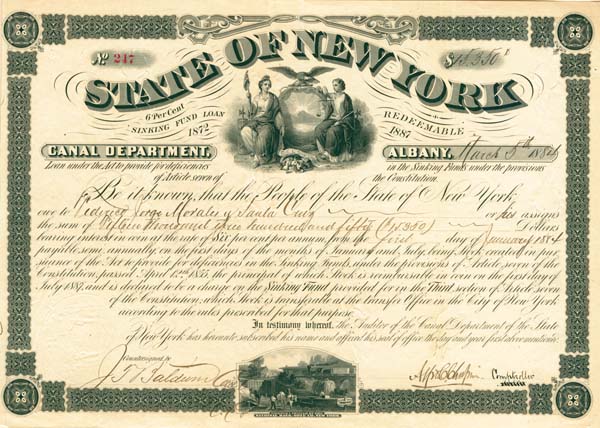 No 247
$15,350
STATE OF NEW YORK
6 Per Cent
SINKING FUND LOAN
1872
REDEEMABLE
1887
CANAL DEPARTMENT,
ALBANY, March 5th 1884
Loan under the Act to provide for deficiencies
in the Sinking Funds, under the provisions
of Article seven of
the Constitution.
Be it known, that the People of the State of New York
owe to Federico Jorge Morales y Santa Cruz or his assigns
the sum of Fifteen thousand three hundred and fifty ($15,350) Dollars
bearing interest at the rate of Six per cent per annum, from the first day of January 1884
payable semi annually on the first days of the months of January and July, being Stock created in pur
of the Act to provide for deficiencies in the Sinking Funds, under the provisions of Article seven of the
Constitution, passed April the principal of which Stock is reimbursable in even on the first day of
July 1887, and is declared to be a charge on the Sinking Fund provided for in the Third section of Article seven
of the Constitution; which Stock is transferable at the transfer Office in the City of New York
according to the rules prescribed for that purpose.
In testimony whereof, the Auditor of the Canal Department of the State
of New York has hereunto subscribed his name and affixed his seal of office the day and year first above mentioned.
Countersigned by
Baldwin
Alfred C. Chapin Comptroller